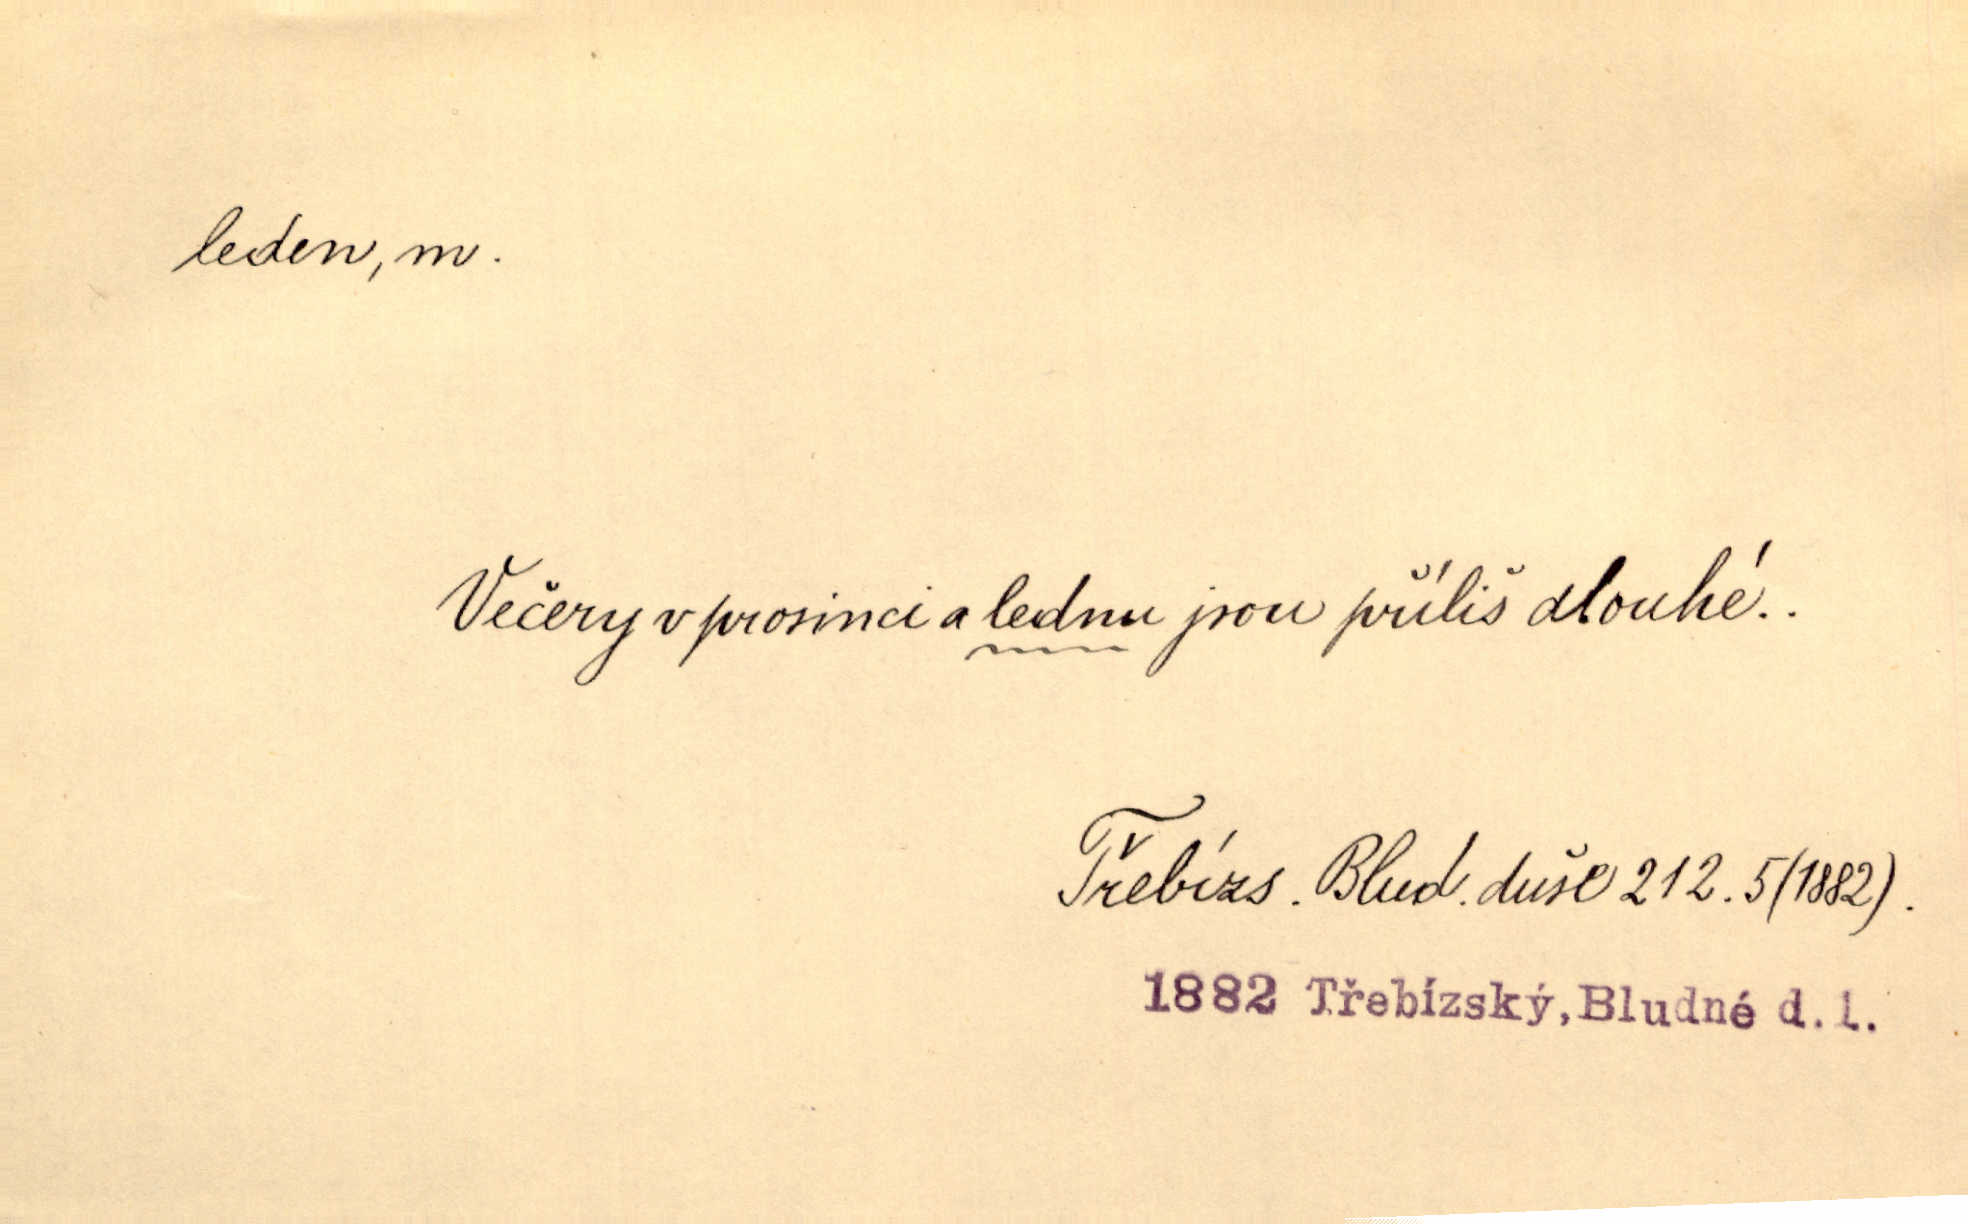 leden, m.
Večery v prosinci a lednu jsou příliš dlouhé..
Třebízs. Blud. duše 212.5 (1882).
1882 Třebízský, Bludné d. 1.